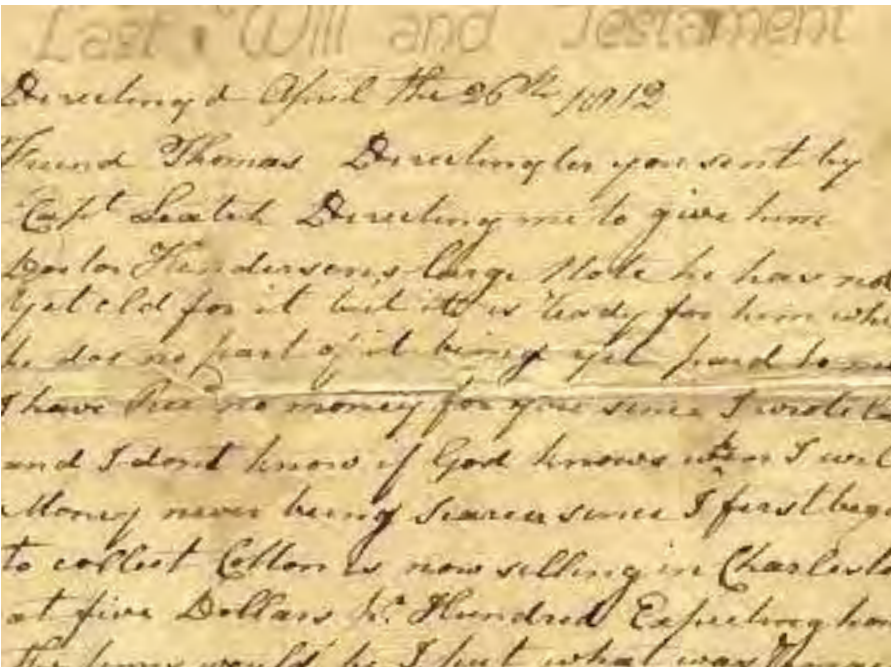 Last Will and Testament
April the 26th 1812
Friend Thomas you sent by
Capt Directing me to give him
Doctor Hendersons large Note he has not
yet for it but it is ready for him
he does no part of it being yet paid to me
I have Recd no money for you since I wrote to
and I dont know if God knows when I wil
Money never being scarcer since I first beg
to collect Cotton is now selling in Charlesto
at five Dollars Hundred Expecting
would be I put what